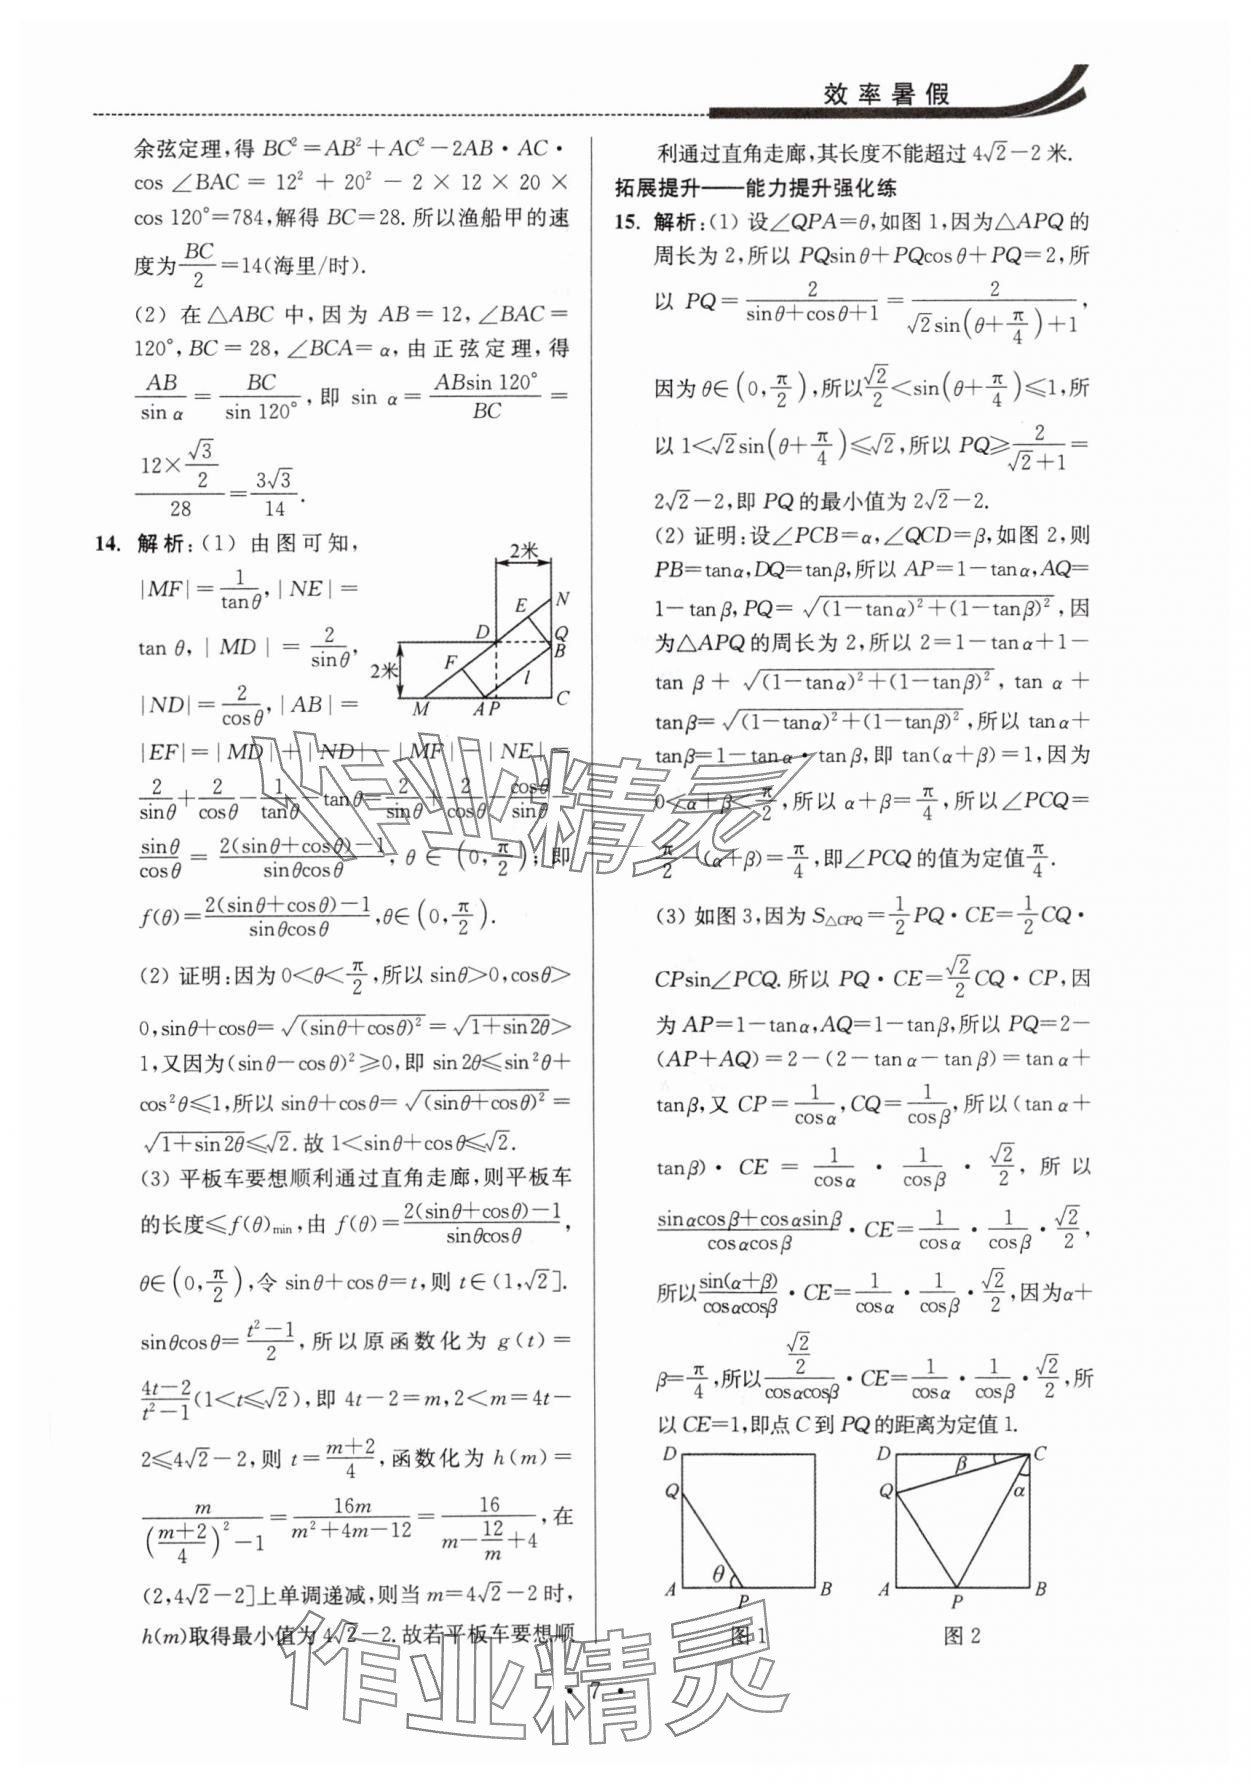 效率暑假
余弦定理,得 BC²=AB²+AC²-2AB·AC·
cos∠BAC=12²+20²-2×12×20×
cos 120°=784,解得 BC=28.所以渔船甲的速
度为\frac{BC}{2}=14(海里/时).
(2) 在△ABC 中,因为 AB=12,∠BAC=
120°,BC=28,∠BCA=α,由正弦定理,得
\frac{AB}{sin α}=\frac{BC}{sin 120°},即 sin α=\frac{ABsin 120°}{BC}=
\frac{12×\frac{√3}{2}}{28}=\frac{3√3}{14}.
14. 解析:(1) 由图可知,
|MF|=\frac{1}{tanθ},|NE|=
tan θ,|MD|=\frac{2}{sinθ},
|ND|=\frac{2}{cosθ},|AB|=
|EF|=|MD|+|ND|-|MF|-|NE|=
\frac{2}{sinθ}+\frac{2}{cosθ}-\frac{1}{tanθ}-tanθ=\frac{2}{sinθ}+\frac{2}{cosθ}-\frac{cosθ}{sinθ}-
\frac{sinθ}{cosθ}=\frac{2(sinθ+cosθ)-1}{sinθcosθ},θ∈(0,\frac{π}{2});即
f(θ)=\frac{2(sinθ+cosθ)-1}{sinθcosθ},θ∈(0,\frac{π}{2}).
(2) 证明:因为 0<θ<\frac{π}{2},所以 sinθ>0,cosθ>
0,sinθ+cosθ=√((sinθ+cosθ)²)=√(1+sin2θ)>
1,又因为(sinθ-cosθ)²≥0,即 sin2θ≤sin²θ+
cos²θ≤1,所以 sinθ+cosθ=√((sinθ+cosθ)²)=
√(1+sin2θ)≤√2.故 1<sinθ+cosθ≤√2.
(3) 平板车要想顺利通过直角走廊,则平板车
的长度≤f(θ)min,由 f(θ)=\frac{2(sinθ+cosθ)-1}{sinθcosθ},
θ∈(0,\frac{π}{2}),令 sinθ+cosθ=t,则 t∈(1,√2].
sinθcosθ=\frac{t²-1}{2},所以原函数化为 g(t)=
\frac{4t-2}{t²-1}(1<t≤√2),即 4t-2=m,2<m=4t-
2≤4√2-2,则 t=\frac{m+2}{4},函数化为 h(m)=
\frac{m}{(\frac{m+2}{4})²-1}=\frac{16m}{m²+4m-12}=\frac{16}{m-\frac{12}{m}+4},在
(2,4√2-2]上单调递减,则当 m=4√2-2 时,
h(m)取得最小值为 4√2-2.故若平板车要想顺
2米
N
E
D
Q
B
F
2米
l
M
A
P
C
利通过直角走廊,其长度不能超过 4√2-2 米.
拓展提升——能力提升强化练
15. 解析:(1) 设∠QPA=θ,如图 1,因为△APQ 的
周长为 2,所以 PQsinθ+PQcosθ+PQ=2,所
以 PQ=\frac{2}{sinθ+cosθ+1}=\frac{2}{√2sin(θ+\frac{π}{4})+1},
因为 θ∈(0,\frac{π}{2}),所以\frac{√2}{2}<sin(θ+\frac{π}{4})≤1,所
以 1<√2sin(θ+\frac{π}{4})≤√2,所以 PQ≥\frac{2}{√2+1}=
2√2-2,即 PQ 的最小值为 2√2-2.
(2) 证明:设∠PCB=α,∠QCD=β,如图 2,则
PB=tanα,DQ=tanβ,所以 AP=1-tanα,AQ=
1-tanβ,PQ=√((1-tanα)²+(1-tanβ)²),因
为△APQ 的周长为 2,所以 2=1-tanα+1-
tan β+√((1-tanα)²+(1-tanβ)²),tan α+
tanβ=√((1-tanα)²+(1-tanβ)²),所以 tanα+
tanβ=1-tanα·tanβ,即 tan(α+β)=1,因为
0<α+β<\frac{π}{2},所以 α+β=\frac{π}{4},所以∠PCQ=
\frac{π}{2}-(α+β)=\frac{π}{4},即∠PCQ 的值为定值\frac{π}{4}.
(3) 如图 3,因为 S△CPQ=\frac{1}{2}PQ·CE=\frac{1}{2}CQ·
CPsin∠PCQ.所以 PQ·CE=\frac{√2}{2}CQ·CP,因
为 AP=1-tanα,AQ=1-tanβ,所以 PQ=2-
(AP+AQ)=2-(2-tanα-tanβ)=tanα+
tanβ,又 CP=\frac{1}{cosα},CQ=\frac{1}{cosβ},所以(tanα+
tanβ)·CE=\frac{1}{cosα}·\frac{1}{cosβ}·\frac{√2}{2},所以
\frac{sinαcosβ+cosαsinβ}{cosαcosβ}·CE=\frac{1}{cosα}·\frac{1}{cosβ}·\frac{√2}{2},
所以\frac{sin(α+β)}{cosαcosβ}·CE=\frac{1}{cosα}·\frac{1}{cosβ}·\frac{√2}{2},因为α+
β=\frac{π}{4},所以\frac{\frac{√2}{2}}{cosαcosβ}·CE=\frac{1}{cosα}·\frac{1}{cosβ}·\frac{√2}{2},所
以 CE=1,即点 C 到 PQ 的距离为定值 1.
D
Q
θ
A
P
B
图 1
D
C
β
α
Q
A
P
B
图 2
· 7 ·
作业精灵
作业精灵